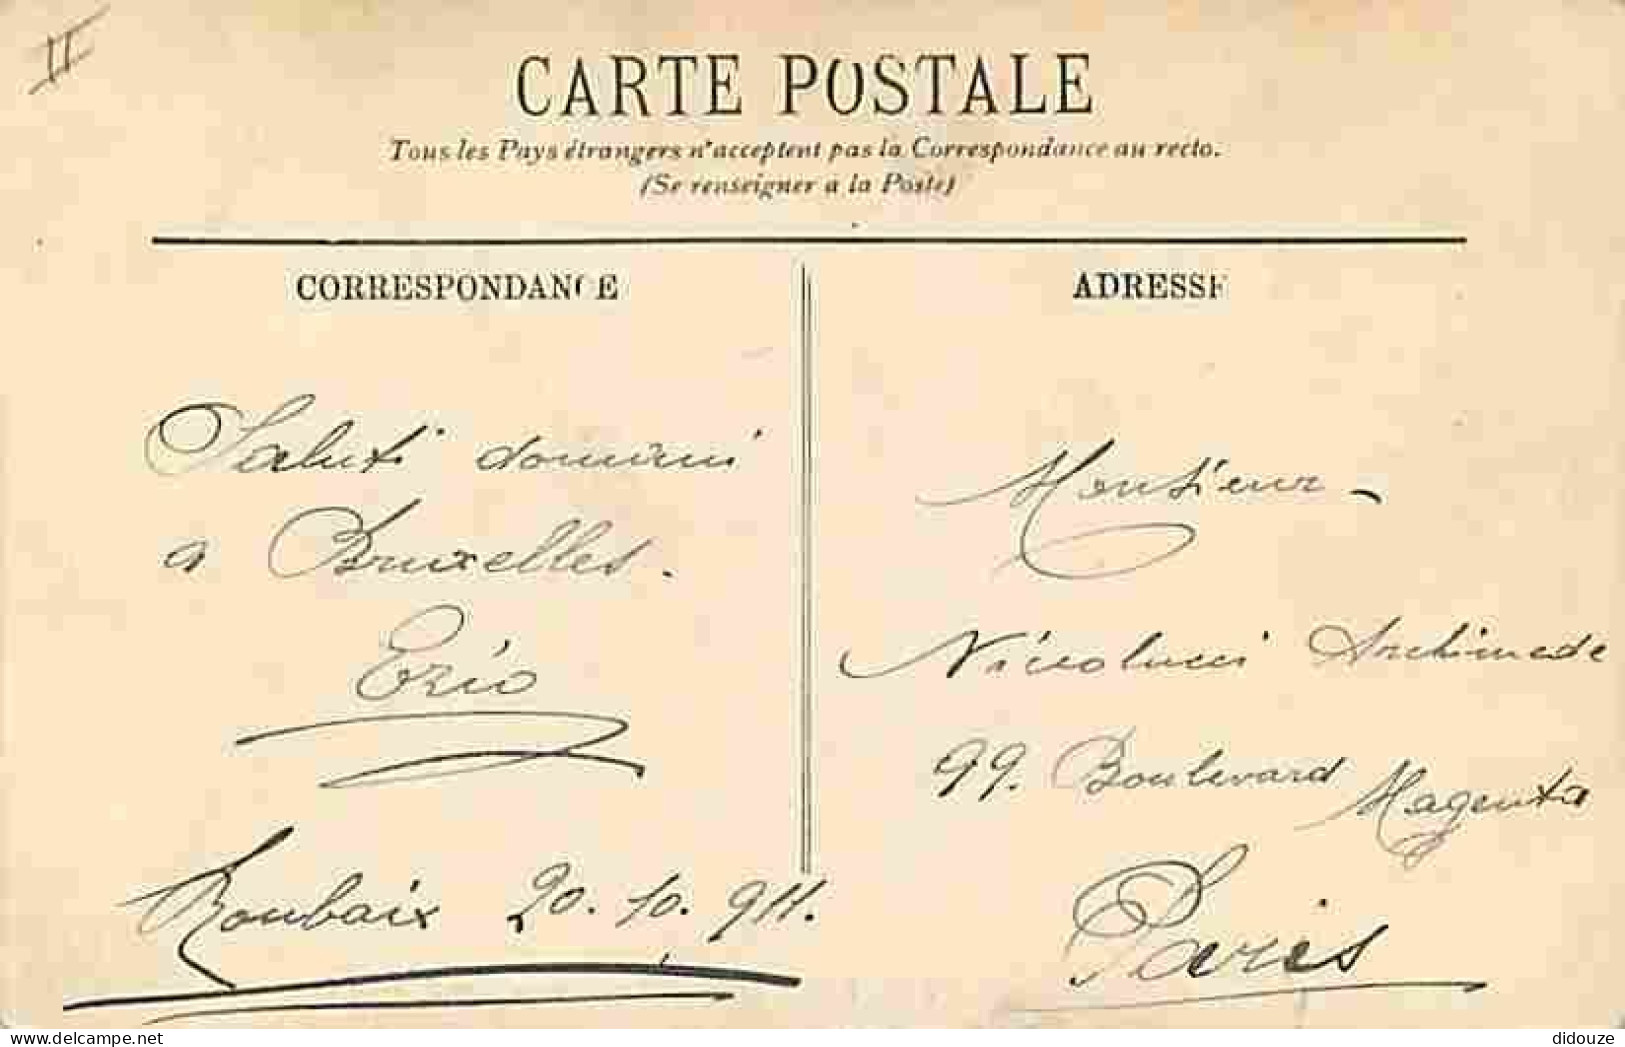 II
CARTE POSTALE
Tous les Pays étrangers n'acceptent pas la Correspondance au recto.
(Se renseigner à la Poste)
CORRESPONDANCE
Saluti domani
a Bruxelles.
Ezio
Roubaix 20.10.911.
ADRESSE
Monsieur
Niccolucci Archimede
99. Boulevard Magenta
Paris
didouze